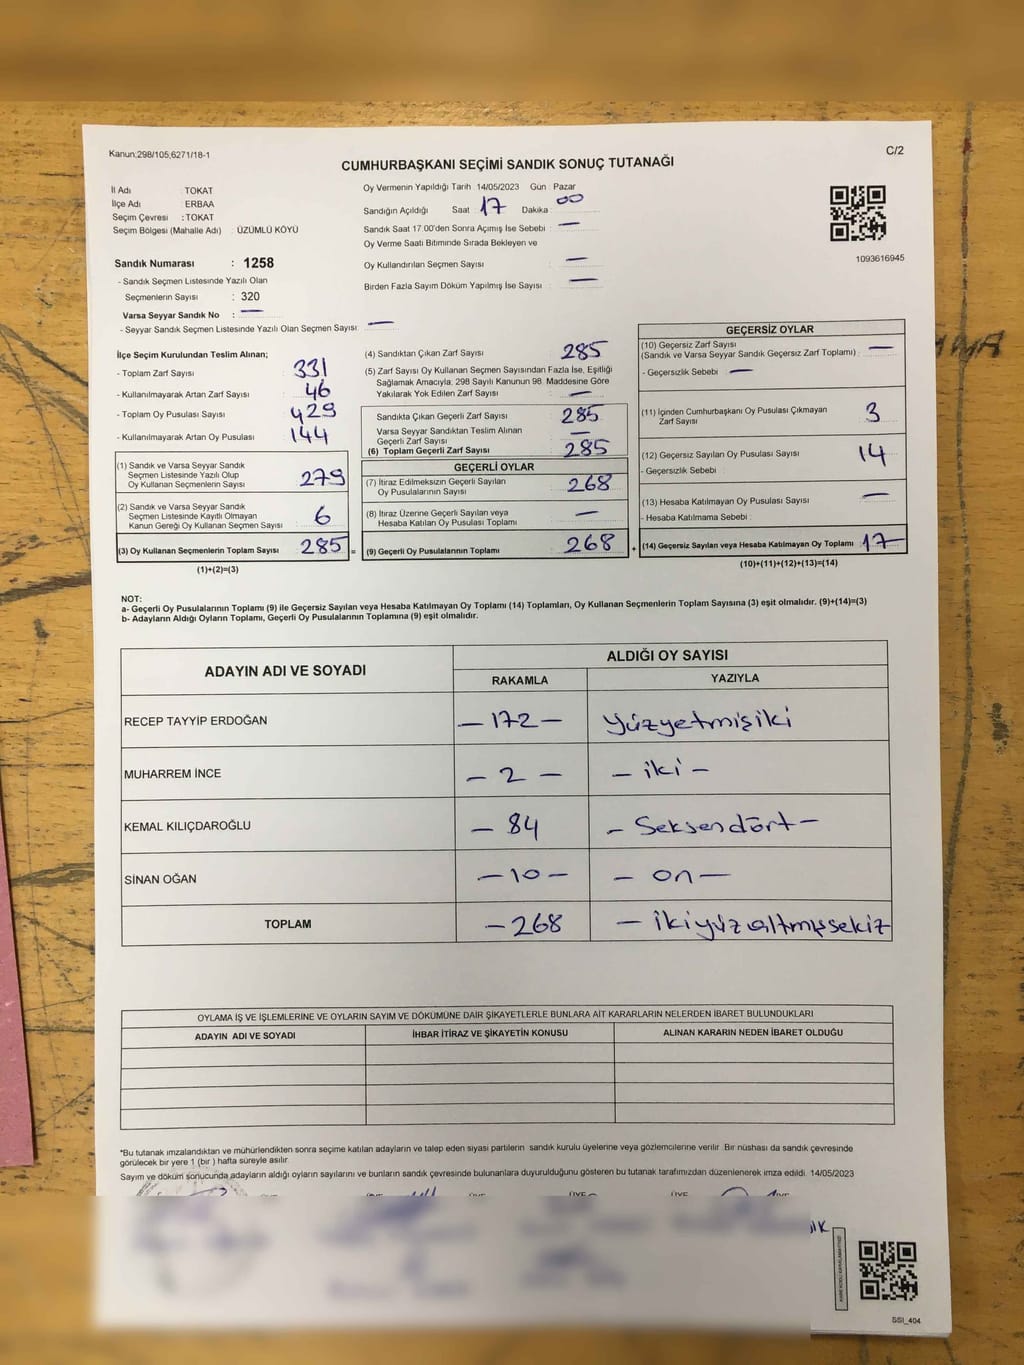 Kanun;298/105,6271/18-1
C/2
CUMHURBAŞKANI SEÇİMİ SANDIK SONUÇ TUTANAĞI
İl Adı : TOKAT
İlçe Adı : ERBAA
Seçim Çevresi : TOKAT
Seçim Bölgesi (Mahalle Adı) : ÜZÜMLÜ KÖYÜ
Oy Vermenin Yapıldığı Tarih 14/05/2023 Gün : Pazar
Sandığın Açıldığı Saat 17 Dakika : 00
Sandık Saat 17.00'den Sonra Açımış İse Sebebi : —
Oy Verme Saati Bitiminde Sırada Bekleyen ve
Oy Kullandırılan Seçmen Sayısı : —
Birden Fazla Sayım Döküm Yapılmış İse Sayısı : —
1093616945
Sandık Numarası : 1258
- Sandık Seçmen Listesinde Yazılı Olan
Seçmenlerin Sayısı : 320
Varsa Seyyar Sandık No : —
- Seyyar Sandık Seçmen Listesinde Yazılı Olan Seçmen Sayısı: —
İlçe Seçim Kurulundan Teslim Alınan;
- Toplam Zarf Sayısı : 331
- Kullanılmayarak Artan Zarf Sayısı : 46
- Toplam Oy Pusulası Sayısı : 429
- Kullanılmayarak Artan Oy Pusulası : 144
(1) Sandık ve Varsa Seyyar Sandık
Seçmen Listesinde Yazılı Olup
Oy Kullanan Seçmenlerin Sayısı : 279
(2) Sandık ve Varsa Seyyar Sandık
Seçmen Listesinde Kayıtlı Olmayan
Kanun Gereği Oy Kullanan Seçmen Sayısı : 6
(3) Oy Kullanan Seçmenlerin Toplam Sayısı : 285 =
(1)+(2)=(3)
(4) Sandıktan Çıkan Zarf Sayısı : 285
(5) Zarf Sayısı Oy Kullanan Seçmen Sayısından Fazla İse, Eşitliği
Sağlamak Amacıyla, 298 Sayılı Kanunun 98. Maddesine Göre
Yakılarak Yok Edilen Zarf Sayısı : —
Sandıkta Çıkan Geçerli Zarf Sayısı : 285
Varsa Seyyar Sandıktan Teslim Alınan
Geçerli Zarf Sayısı : —
(6) Toplam Geçerli Zarf Sayısı : 285
GEÇERLİ OYLAR
(7) İtiraz Edilmeksizin Geçerli Sayılan
Oy Pusulalarının Sayısı : 268
(8) İtiraz Üzerine Geçerli Sayılan veya
Hesaba Katılan Oy Pusulası Toplamı : —
(9) Geçerli Oy Pusulalarının Toplamı : 268 +
GEÇERSİZ OYLAR
(10) Geçersiz Zarf Sayısı
(Sandık ve Varsa Seyyar Sandık Geçersiz Zarf Toplamı) : —
- Geçersizlik Sebebi : —
(11) İçinden Cumhurbaşkanı Oy Pusulası Çıkmayan
Zarf Sayısı : 3
(12) Geçersiz Sayılan Oy Pusulası Sayısı : 14
- Geçersizlik Sebebi :
(13) Hesaba Katılmayan Oy Pusulası Sayısı : —
- Hesaba Katılmama Sebebi :
(14) Geçersiz Sayılan veya Hesaba Katılmayan Oy Toplamı : 17
(10)+(11)+(12)+(13)=(14)
NOT:
a- Geçerli Oy Pusulalarının Toplamı (9) ile Geçersiz Sayılan veya Hesaba Katılmayan Oy Toplamı (14) Toplamları, Oy Kullanan Seçmenlerin Toplam Sayısına (3) eşit olmalıdır. (9)+(14)=(3)
b- Adayların Aldığı Oyların Toplamı, Geçerli Oy Pusulalarının Toplamına (9) eşit olmalıdır.
ADAYIN ADI VE SOYADI
ALDIĞI OY SAYISI
RAKAMLA YAZIYLA
RECEP TAYYİP ERDOĞAN – 172 – yüzyetmişiki
MUHARREM İNCE – 2 – – iki –
KEMAL KILIÇDAROĞLU – 84 – Seksendört –
SİNAN OĞAN – 10 – – on –
TOPLAM – 268 – ikiyüzaltmışsekiz
OYLAMA İŞ VE İŞLEMLERİNE VE OYLARIN SAYIM VE DÖKÜMÜNE DAİR ŞİKAYETLERLE BUNLARA AİT KARARLARIN NELERDEN İBARET BULUNDUKLARI
ADAYIN ADI VE SOYADI İHBAR İTİRAZ VE ŞİKAYETİN KONUSU ALINAN KARARIN NEDEN İBARET OLDUĞU
*Bu tutanak imzalandıktan ve mühürlendikten sonra seçime katılan adayların ve talep eden siyasi partilerin sandık kurulu üyelerine veya gözlemcilerine verilir. Bir nüshası da sandık çevresinde
görülecek bir yere 1 (bir ) hafta süreyle asılır.
Sayım ve döküm sonucunda adayların aldığı oyların sayılarını ve bunların sandık çevresinde bulunanlara duyurulduğunu gösteren bu tutanak tarafımızdan düzenlenerek imza edildi. 14/05/2023
SSİ_404